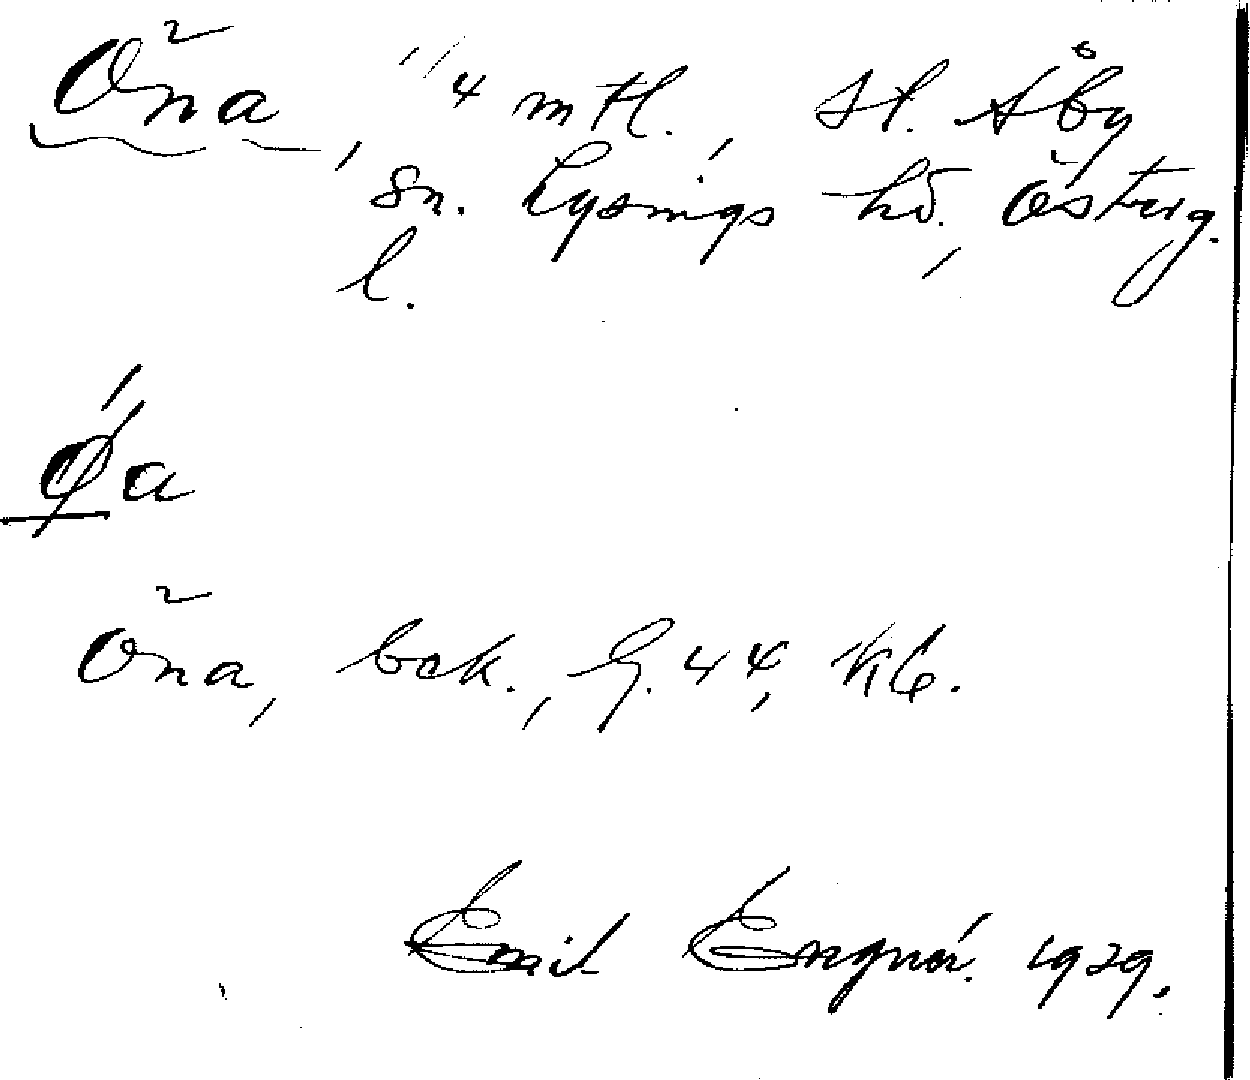 Öna, 1/4 mtl., St. Åby
sn. Lysings hd., Österg.
l.
Øa
Öna, bek., G. 44, Kb.
Emil Engnér. 1929.